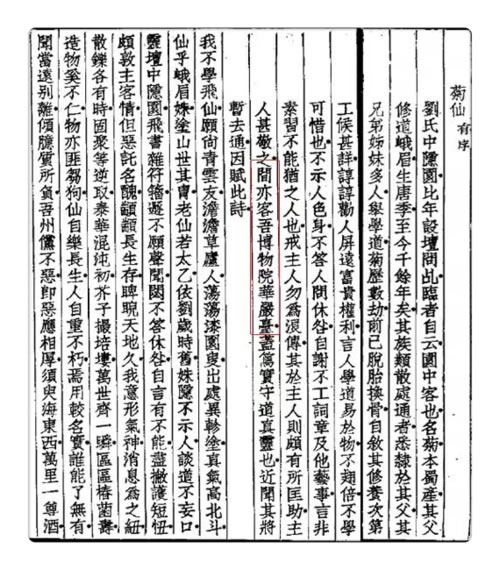 菊仙 有序
劉氏中隱園比年設壇問乩臨者自云園中客也名菊本蜀產其父
修道峨眉生唐季至今千餘年矣其族類散處通者悉隸於其父其
兄弟姊妹多人舉學道菊歷數劫前已脫胎換骨自敘其修養次第
工候甚詳諄諄勸人屏遠富貴權利言人學道易於物不翅倍不學
可惜也不示人色身不答人問休咎自謝不工詞章及他藝事言非
素習不能猶之人也戒主人勿為浪傳其於主人則頗有所匡助主
人甚敬之間亦客吾博物院華嚴臺蓋篤實守道真靈也近聞其將
暫去通因賦此詩
我不學飛仙願向青雲友澹澹草廬人蕩蕩漆園叟出處異軫塗真氣高北斗
仙乎峨眉姝塗山世其冑老仙若太乙依劉歲時舊姝隱不示人談道不妄口
靈壇中隱園飛書雜符籀遯不願聲聞閟不答休咎自言有不能盡撇護短忸
頗敦主客情但惡託名醜顓顓長生存睥睨天地久我意形氣神消息為之紐
散鑠各有時固聚等逆取泰華混沌初芥子撮培塿萬世齊一瞬區區椿菌壽
造物奚不仁物亦匪芻狗仙自樂長生人自重不朽焉用較名實誰能了無有
聞當遠別離傾臆質所負吾州儻不惡即惡應相厚須與海東西萬里一尊酒